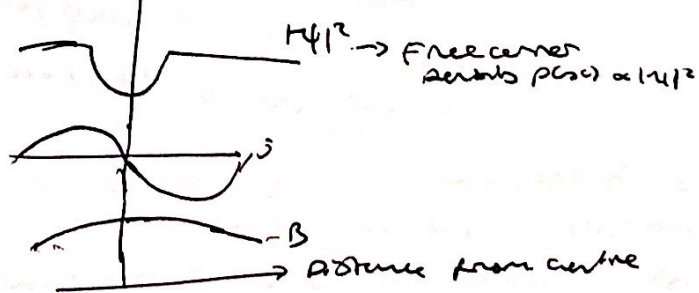 |ψ|² → Free carrier
density ρ(x) ∝ |ψ|²
J
B
→ Distance from centre